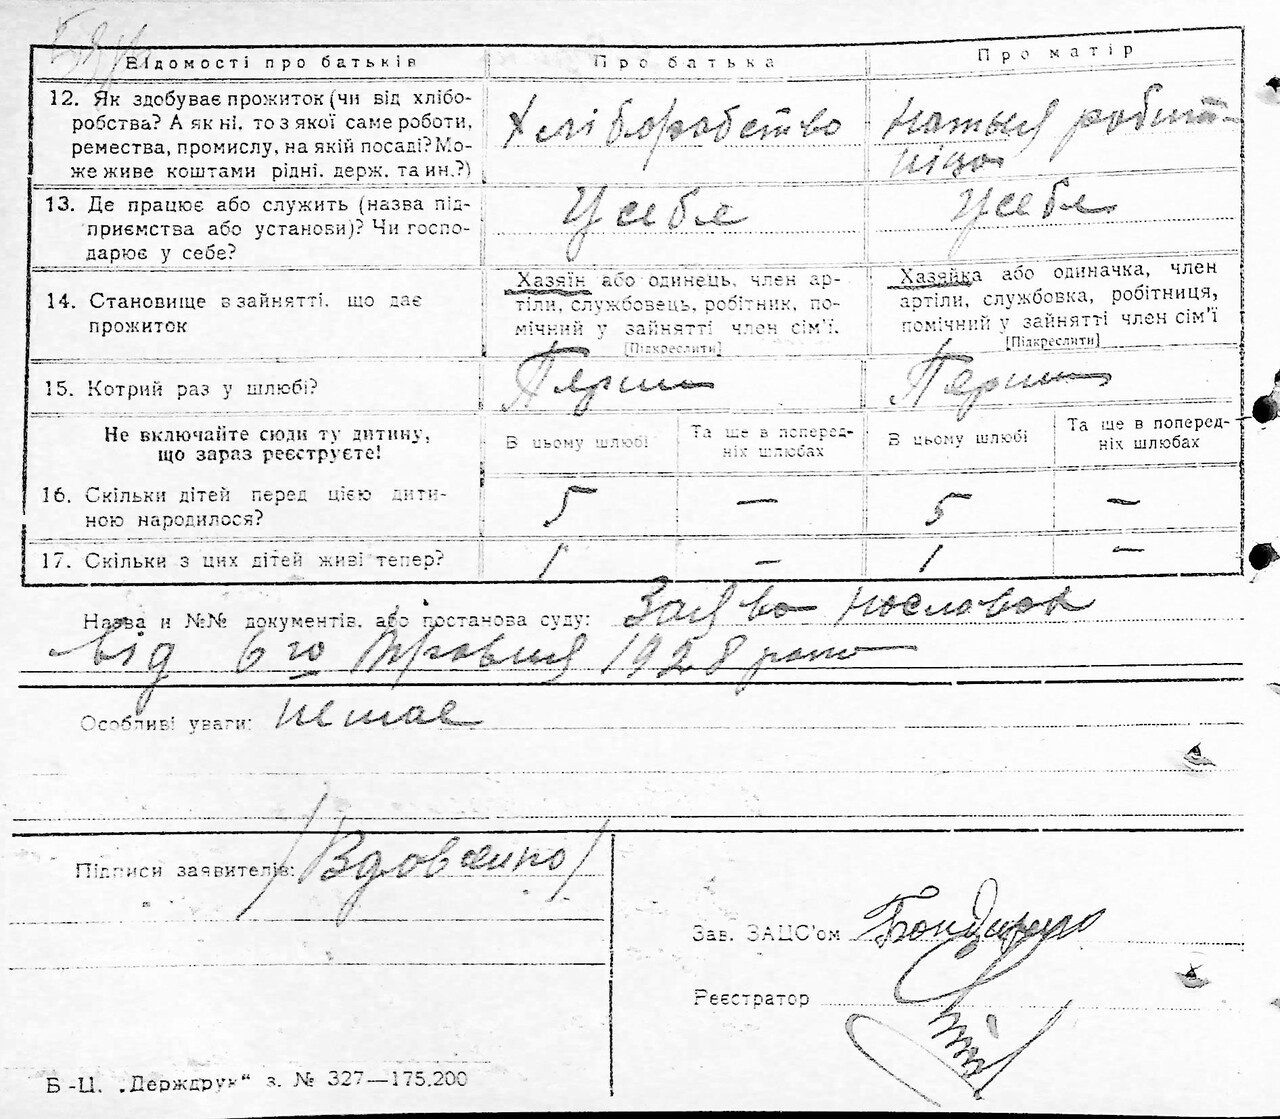 Відомості про батьків
Про батька
Про матір
12. Як здобуває прожиток (чи від хлібо-
робства? А як ні, то з якої саме роботи,
ремества, промислу, на якій посаді? Мо-
же живе коштами рідні, держ. та ин.?)
Хліборобство
робіт-
ніцю
13. Де працює або служить (назва під-
приємства або установи)? Чи госпо-
дарює у себе?
У себе
У себе
14. Становище в зайнятті, що дає
прожиток
Хазяїн або одинець, член ар-
тіли, службовець, робітник, по-
мічний у зайнятті член сім'ї.
[Підкреслити]
Хазяйка або одиначка, член
артіли, службовка, робітниця,
помічний у зайнятті член сім'ї
[Підкреслити]
15. Котрий раз у шлюбі?
Перши
Перши
Не включайте сюди ту дитину,
що зараз реєструєте!
В цьому шлюбі
Та ще в поперед-
ніх шлюбах
В цьому шлюбі
Та ще в поперед-
ніх шлюбах
16. Скільки дітей перед цією дити-
ною народилося?
5
—
5
—
17. Скільки з цих дітей живі тепер?
1
—
1
—
Назва и №№ документів, або постанова суду: Заява
від 6го Травня 1928 року
Особливі уваги: немає
Підписи заявителів: /Вдовенко/
Зав. ЗАЦС'ом
Реєстратор
Б-Ц. „Держдрук“ з. № 327—175.200